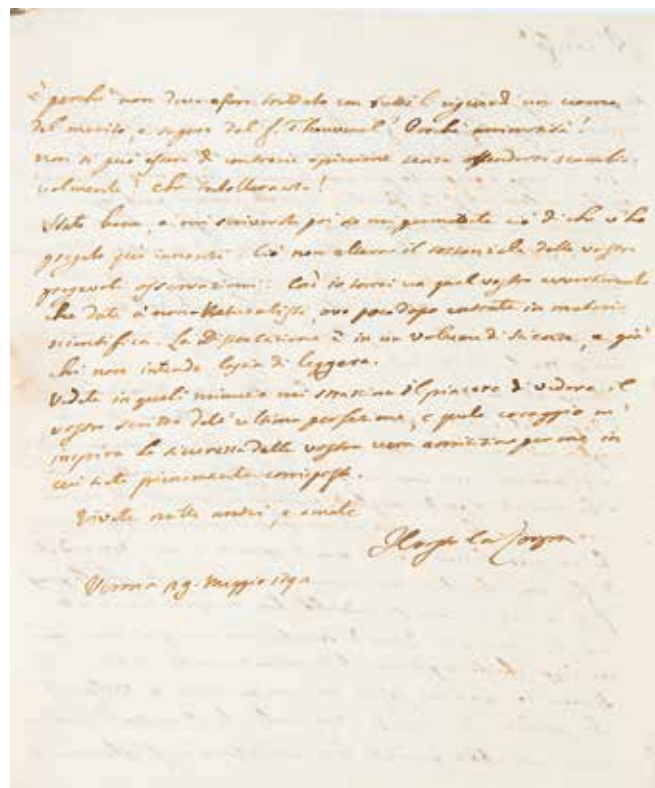 E perchè non deve essere trattato con tutti i riguardi un uomo
del merito, e sapere del S. Thouvenel! Perchè animosità!
non si può essere di contrario opinione senza offendersi scambie-
volmente! che intolleranza!
State bene, e mi scriverete poi se mi permettete ciò di che v'ho
pregato più innanzi. Ciò non altera il sostanziale delle vostre
pregevoli osservazioni. Così io torrei via quel vostro avvertimento
che date a' non-Naturalisti, ove poco dopo entrate in materia
scientifica. La Dissertazione è in un volume di scienze, e già
chi non intende lascia di leggere.
Vedete in quali minuzie mi strascina il piacere di vedere il
vostro scritto dell'ultima perfezione, e quale coraggio m'
inspira la sicurezza della vostra vera amicizia per me in
cui siete pienamente corrisposto.
Vivete mille anni, e amate
Verona 19. Maggio 1792